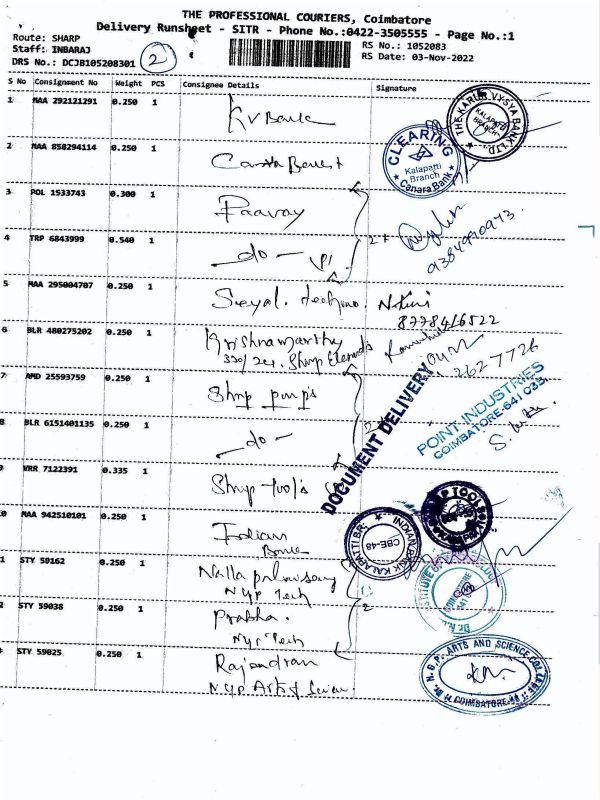 THE PROFESSIONAL COURIERS, Coimbatore
Delivery Runsheet - SITR - Phone No.:0422-3505555 - Page No.:1
Route: SHARP
Staff: INBARAJ
DRS No.: DCJB105208301
2
RS No.: 1052083
RS Date: 03-Nov-2022
S No Consignment No Weight PCS Consignee Details Signature
1 MAA 292121291 0.250 1 KV Bank
THE KARUR VYSYA BANK LTD. KALAPATTI BRANCH
2 MAA 858294114 0.250 1
CLEARING Kalapatti Branch Canara Bank
3 POL 1533743 0.300 1 Paavay
4 TRP 6843999 0.540 1 -do-
9384990943
5 MAA 295004707 0.250 1
8778416522
6 BLR 480275202 0.250 1 Krishnamurthy
2627726
DOCUMENT DELIVERY
7 AMD 25593759 0.250 1 Sharp pumps
POINT INDUSTRIES
COIMBATORE-641 035
8 BLR 6151401135 0.250 1 -do-
9 VRR 7122391 0.335 1 Sharp tools
0 MAA 942510101 0.250 1 Indian Bank
INDIAN BANK KALAPATTI BR. CBE-48
1 STY 59162 0.250 1
NGP Tech
2 STY 59038 0.250 1 Prabha.
NGP Tech
STY 59025 0.250 1 Rajandran
NGP Arts & Scien.
Dr. N.G.P. ARTS AND SCIENCE COLLEGE
COIMBATORE